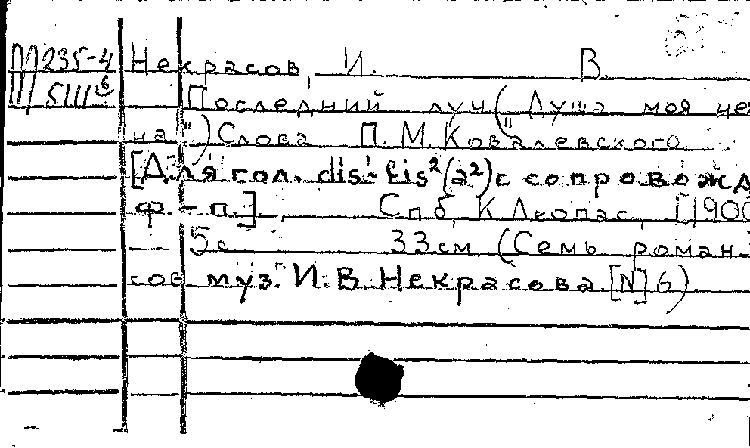 М235-4 Некрасов, И. В.
5111⁶ Последний луч ("Душа моя
на") Слова П. М. Ковалевского
[Для гол. dis¹-fis²(a²) с сопровожд
ф.-п.], Спб, К Леопас, [190
5с 33см (Семь роман-
сов муз. И. В. Некрасова [N] 6)